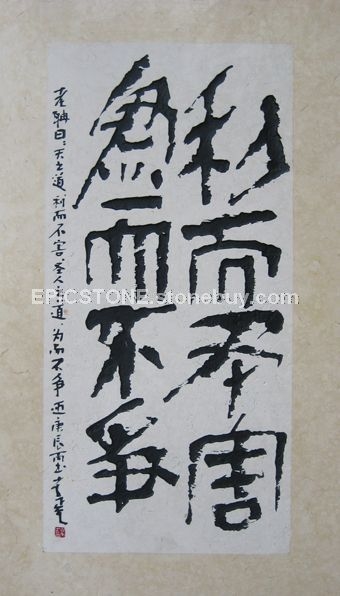 利而不害
為而不爭
老聃曰：天之道，利而不害，圣人之道，为而不争
庚辰
EPICSTONZ.stonebuy.com